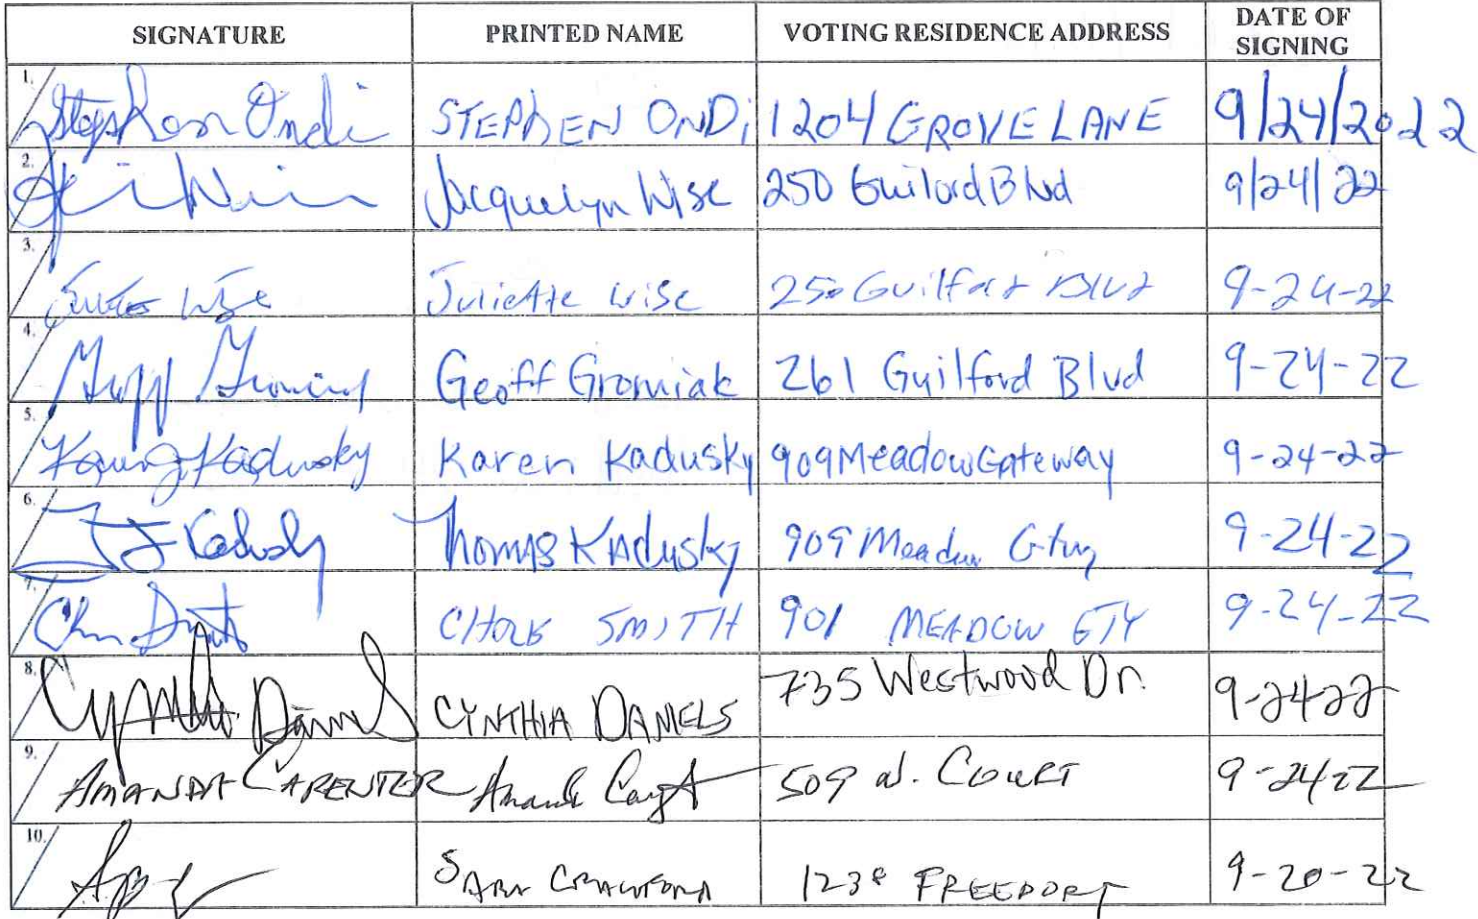 SIGNATURE PRINTED NAME VOTING RESIDENCE ADDRESS DATE OF SIGNING
1. Stephen Ondi STEPHEN ONDi 1204 GROVE LANE 9/24/2022
2. Jacquelyn Wise 250 Guilord Blvd 9/24/22
3. Wise Juliette Wise 250 Guilford Blvd 9-24-22
4. Geoff Gromiak 261 Guilford Blvd 9-24-22
5. Karen Kadusky Karen Kadusky 909 Meadow Gateway 9-24-22
6. Kadusky Thomas Kadusky 909 Meadow Gtwy 9-24-22
7. SMITH 901 MEADOW GTY 9-24-22
8. Cynthia Daniels CYNTHIA DANIELS 735 Westwood Dr. 9-24-22
9. AMANDA CARENTER Amanda 509 W. COURT 9-24-22
10. SARA CRAWFORD 1238 FREEPORT 9-20-22